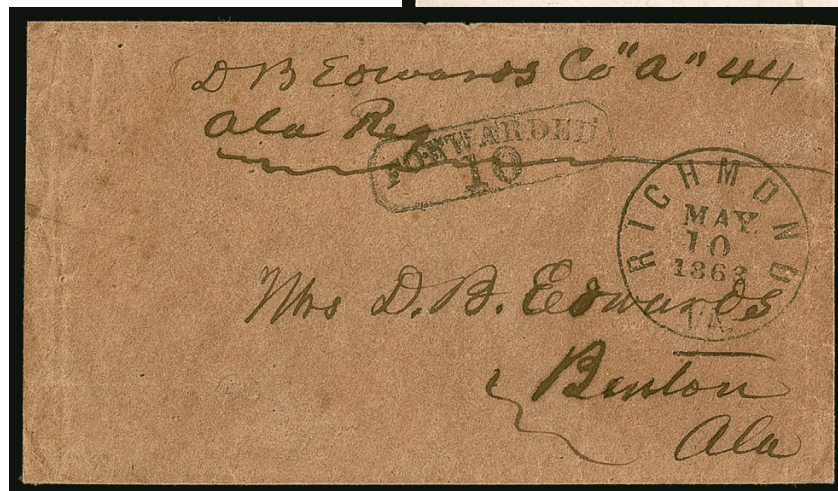 D B Edwards Co "A" 44
Ala Reg
FORWARDED
10
RICHMOND
MAY
10
1863
VA.
Mrs D. B. Edwards
Benton
Ala